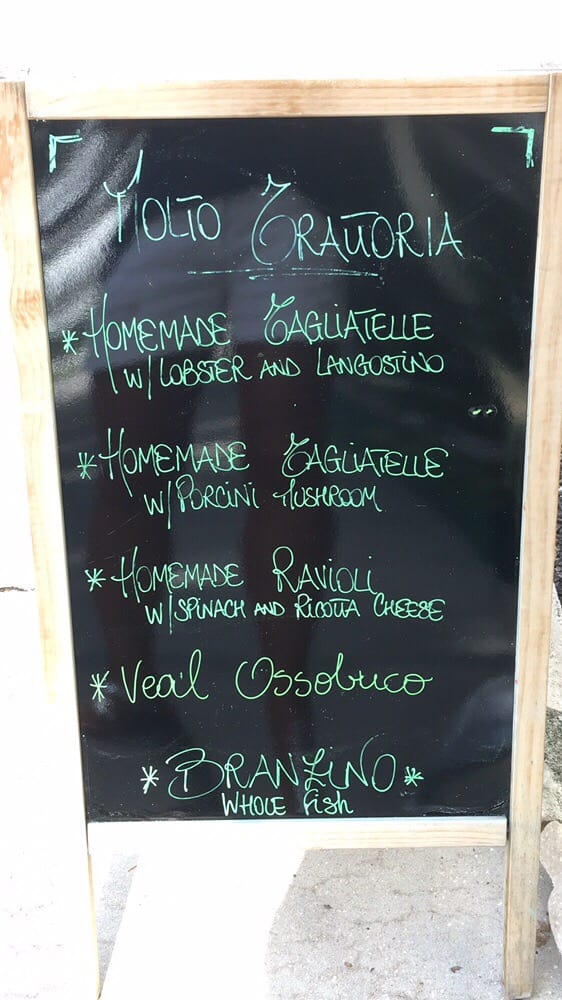 MOLTO TRATTORIA
* HOMEMADE TAGLIATELLE
W/ LOBSTER AND LANGOSTINO
* HOMEMADE TAGLIATELLE
W/ PORCINI MUSHROOM
* HOMEMADE RAVIOLI
W/ SPINACH AND RICOTTA CHEESE
* Veal Ossobuco
* BRANZINO *
WHOLE Fish